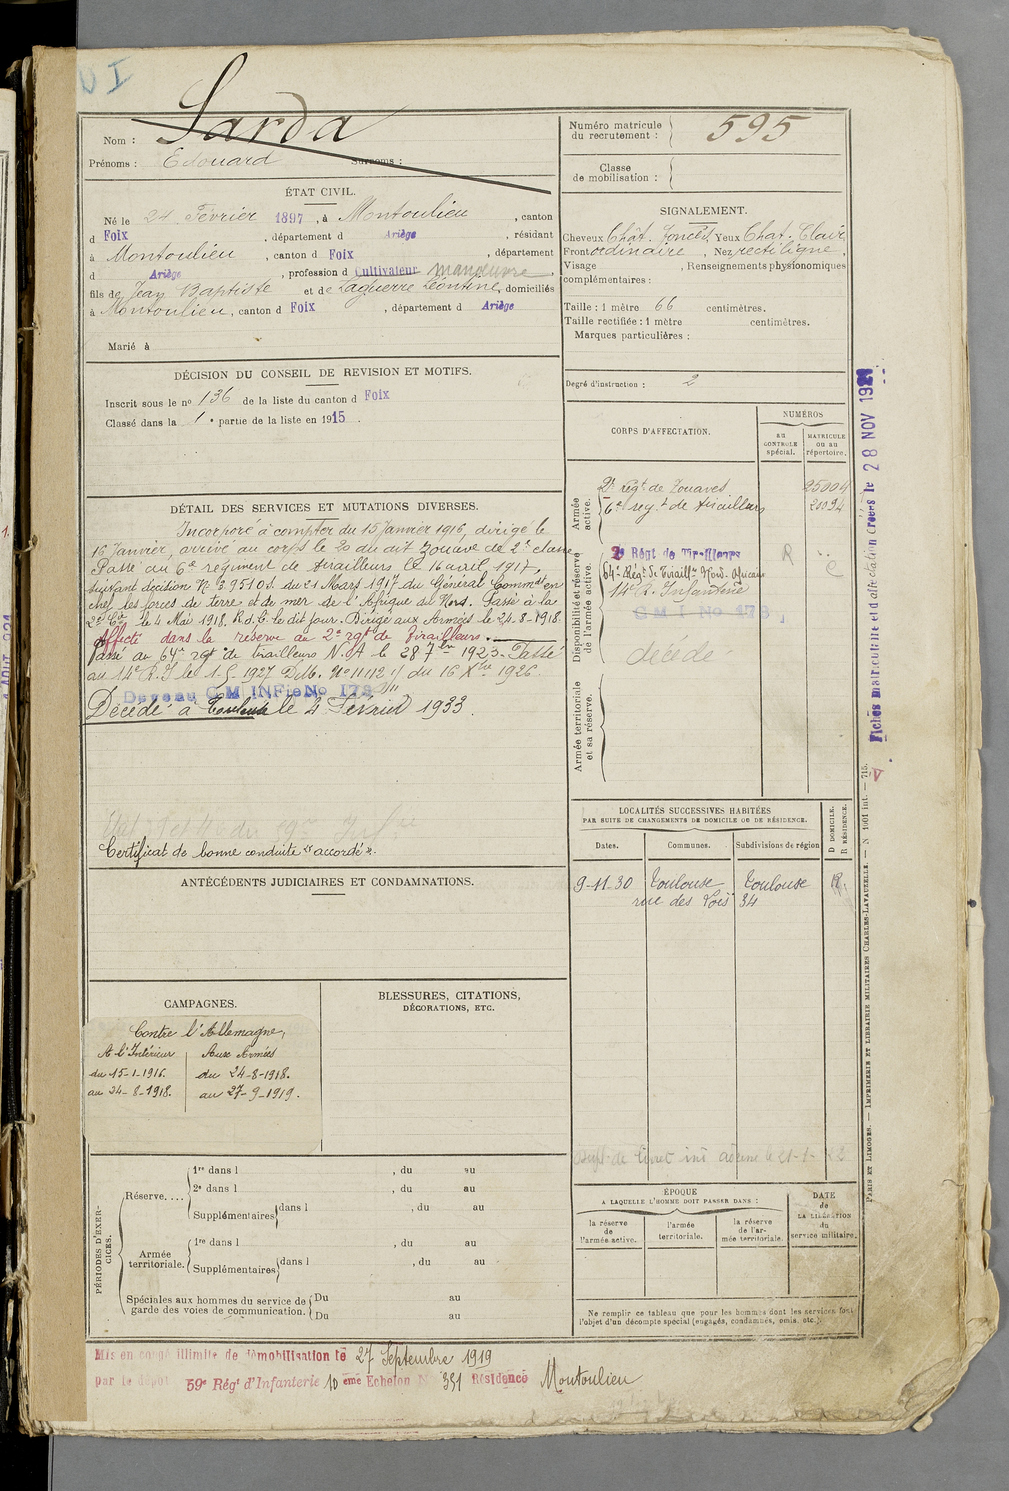 Nom : Sarda
Prénoms : Edouard Surnoms :
ÉTAT CIVIL.
Né le 24 Février 1897, à Montoulieu, canton
d Foix, département d Ariège, résidant
à Montoulieu, canton d Foix, département
d Ariège, profession d Cultivateur manœuvre,
fils de Jean Baptiste et de Laguerre Léontine, domiciliés
à Montoulieu, canton d Foix, département d Ariège
Marié à
DÉCISION DU CONSEIL DE REVISION ET MOTIFS.
Inscrit sous le no 136 de la liste du canton d Foix
Classé dans la 1e partie de la liste en 1915.
DÉTAIL DES SERVICES ET MUTATIONS DIVERSES.
Incorporé à compter du 15 Janvier 1916, dirigé le
16 Janvier, arrivé au corps le 20 du dit Zouave de 2e classe
Passé au 6e régiment de tirailleurs le 16 avril 1917,
suivant décision No 3.951 O.S. du 21 Mars 1917 du Général Commdt en
chef les forces de terre et de mer de l'Afrique du Nord. Passé à la
2e Cie le 4 Mai 1918. R.d.C. le dit jour. Dirigé aux Armées le 24-8-1918.
Affecté dans la réserve au 2e rgt de Tirailleurs.
Passé au 64e rgt de tirailleurs N.A le 28 7bre 1923. Passé
au 14e R.I le 1.5.1927 D.M. No 11112 du 16 Xbre 1926.
C M I No 178
Décédé à Toulouse le 4 Février 1933.
Certificat de bonne conduite "accordé".
ANTÉCÉDENTS JUDICIAIRES ET CONDAMNATIONS.
CAMPAGNES.
Contre l'Allemagne,
A l'Intérieur Aux Armées
du 15-1-1916. du 24-8-1918.
au 24-8-1918. au 27-9-1919.
BLESSURES, CITATIONS,
DÉCORATIONS, ETC.
PÉRIODES D'EXERCICES.
Réserve....
1re dans l , du au
2e dans l , du au
Supplémentaires dans l , du au
Armée territoriale.
1re dans l , du au
Supplémentaires dans l , du au
Spéciales aux hommes du service de garde des voies de communication.
Du au
Du au
Mis en congé illimité de démobilisation le 27 Septembre 1919
par le dépôt 59e Régt d'Infanterie 10 ème Echelon N 351 Résidence Montoulieu
Numéro matricule du recrutement : 595
Classe de mobilisation :
SIGNALEMENT.
Cheveux Chât. foncés, Yeux Chat. Clair
Front ordinaire, Nez rectiligne,
Visage , Renseignements physionomiques
complémentaires :
Taille : 1 mètre 66 centimètres.
Taille rectifiée : 1 mètre centimètres.
Marques particulières :
Degré d'instruction : 2
CORPS D'AFFECTATION.
NUMÉROS
au CONTROLE spécial.
MATRICULE ou au répertoire.
Armée active.
2e régt de Zouaves 25004
6e régt de tirailleurs 21094
Disponibilité et réserve de l'armée active.
2e Régt de Tirailleurs R
64e Régt de Tiraill. Nord-Africain
14e R. Infanterie
C M I No 178
décédé
Armée territoriale et sa réserve.
LOCALITÉS SUCCESSIVES HABITÉES
PAR SUITE DE CHANGEMENTS DE DOMICILE OU DE RÉSIDENCE.
Dates. Communes. Subdivisions de région
D DOMICILE.
R RÉSIDENCE.
9-11-30 Toulouse Toulouse R.
rue des Lois 34
ÉPOQUE
A LAQUELLE L'HOMME DOIT PASSER DANS :
la réserve de l'armée active.
l'armée territoriale.
la réserve de l'armée territoriale.
DATE de LA LIBÉRATION du service militaire.
Ne remplir ce tableau que pour les hommes dont les services font
l'objet d'un décompte spécial (engagés, condamnés, omis, etc.).
Fiches matricule et d'affectation créées le 28 NOV 1921
PARIS ET LIMOGES. — IMPRIMERIE ET LIBRAIRIE MILITAIRES CHARLES-LAVAUZELLE. — N 1001 int. — 715.